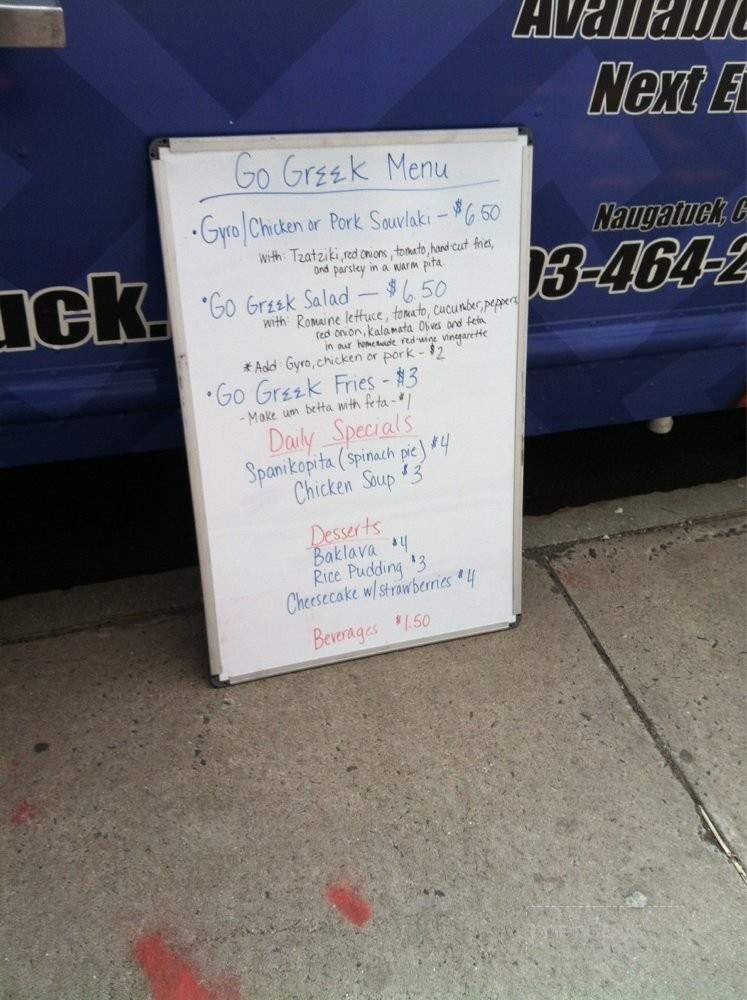 Available
Next E
Naugatuck, C
03-464-2
uck.
Go Grεεk Menu
• Gyro/Chicken or Pork Souvlaki - $6.50
with: Tzatziki, red onions, tomato, hand-cut fries,
and parsley in a warm pita
• Go Grεεk Salad - $6.50
with: Romaine lettuce, tomato, cucumber, peppers
red onion, kalamata Olives and feta
in our homemade red-wine vinegarette
* Add Gyro, chicken or pork - $2
• Go Grεεk Fries - $3
- Make um betta with feta - $1
Daily Specials
Spanikopita (spinach pie) $4
Chicken Soup $3
Desserts
Baklava $4
Rice Pudding $3
Cheesecake w/strawberries $4
Beverages $1.50